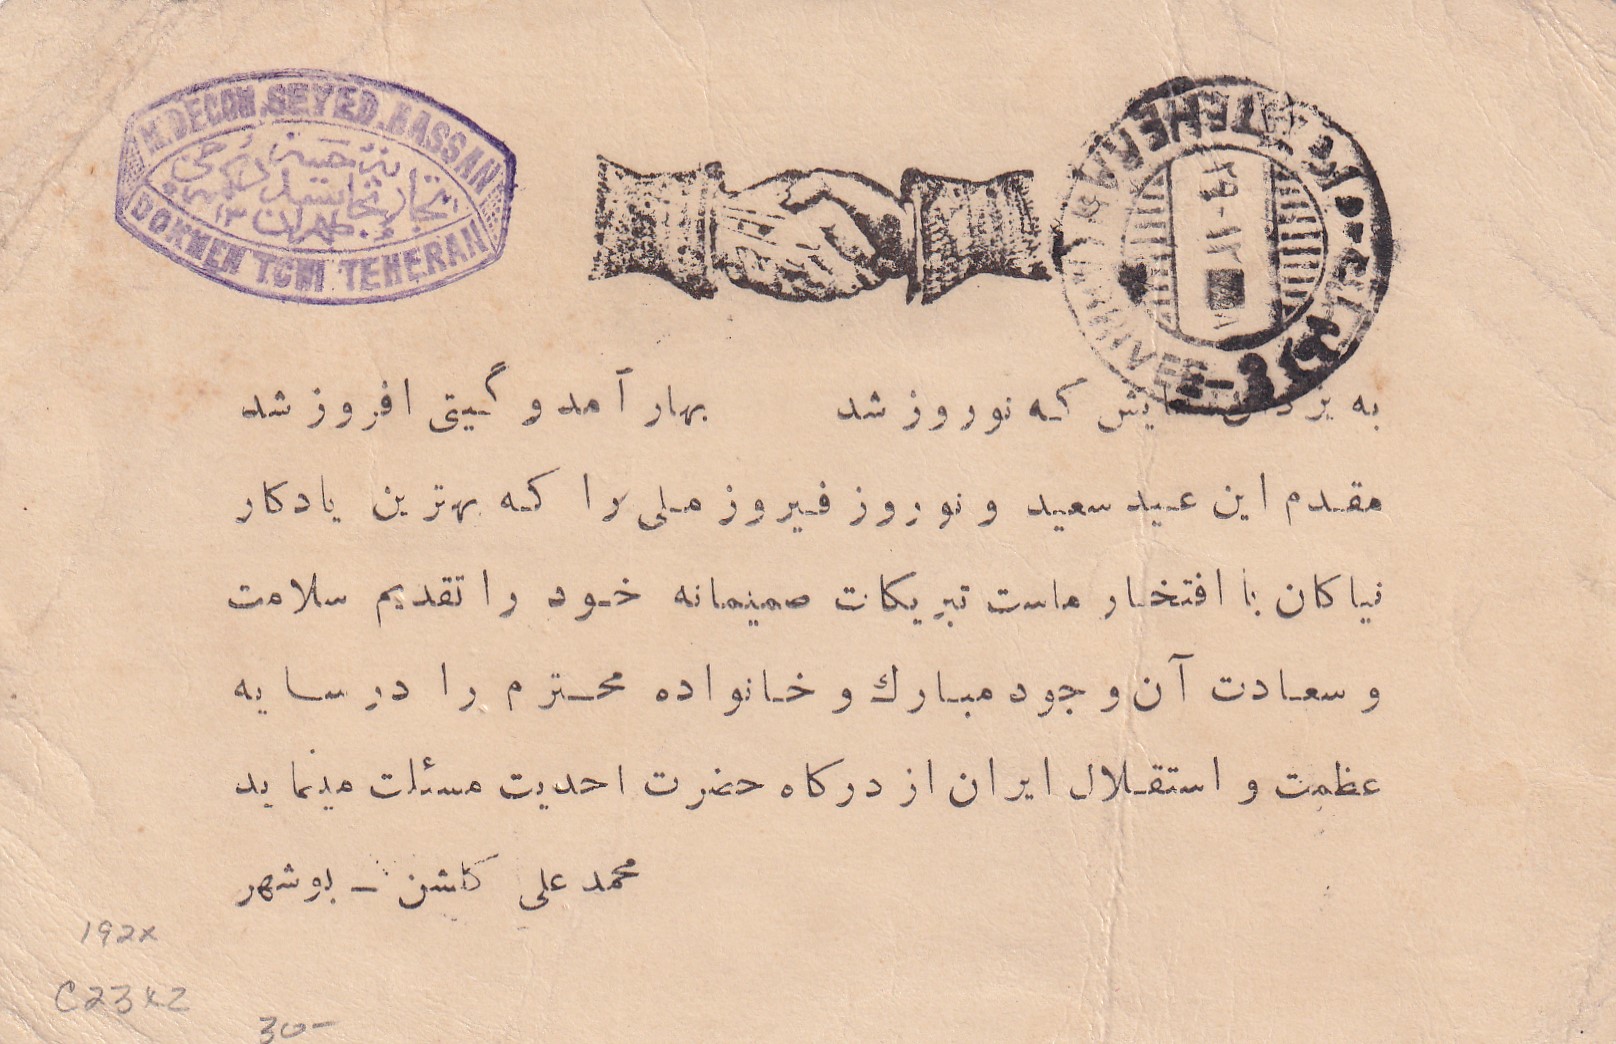 M.DECOM.SEYED.HASSAN
طهران ۱۳
DOKMEH TCHI TEHERAN
TEHERAN
۲۹-۱۲
به یزدان ایش که نوروز شد بهار آمد و گیتی افروز شد
مقدم این عید سعید و نوروز فیروز ملی را که بهترین یادکار
نیاکان با افتخار ماست تبریکات صمیمانه خود را تقدیم سلامت
و سعادت آن وجود مبارك و خانواده محترم را در سایه
عظمت و استقلال ایران از درکاه حضرت احدیت مسئلت مینماید
محمد علی کاشن - بوشهر
192x
C23x2
30-